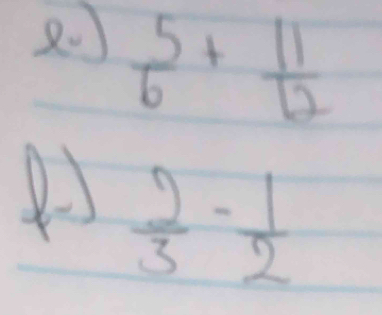 e.) 5/6 + 11/12
f.) 2/3 - 1/2